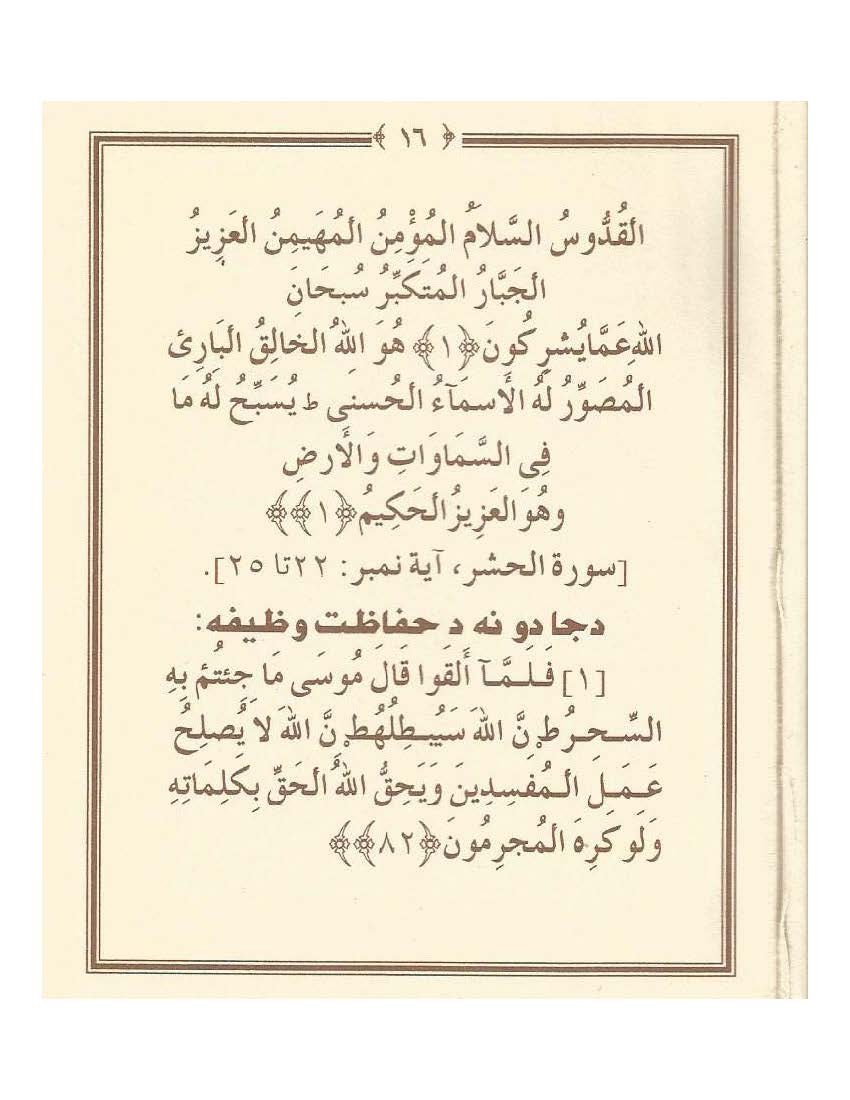 ﴿ ١٦ ﴾
القُدُّوسُ السَّلاَمُ المُؤْمِنُ المُهَيمِنُ العَزِيزُ
الجَبَّارُ المُتَكَبِّرُ سُبحَانَ
اللهِ عَمَّايُشرِكُونَ﴿١﴾ هُوَ اللهُ الخالِقُ البَارِئ
المُصَوِّرُ لَهُ الأَسمَآءُ الحُسنى ط يُسَبِّحُ لَهُ مَا
فِى السَّمَاوَاتِ وَالأَرضِ
وهُوَ العَزِيزُ الحَكِيمُ﴿١﴾﴾
[سورة الحشر، آية نمبر: ٢٢ تا ٢٥].
دجادو نه د حفاظت وظيفه:
[١] فَلَمَّآ أَلقَوا قَالَ مُوسَى مَا جِئتُمُ بِهِ
السِّحرُ ط إِنَّ اللهَ سَيُبطِلُهُ ط إِنَّ اللهَ لاَ يُصلِحُ
عَمَلَ المُفسِدِينَ وَيَحِقُّ اللهُ الحَقَّ بِكَلِمَاتِهِ
وَلَو كَرِهَ المُجرِمُونَ﴿٨٢﴾﴾